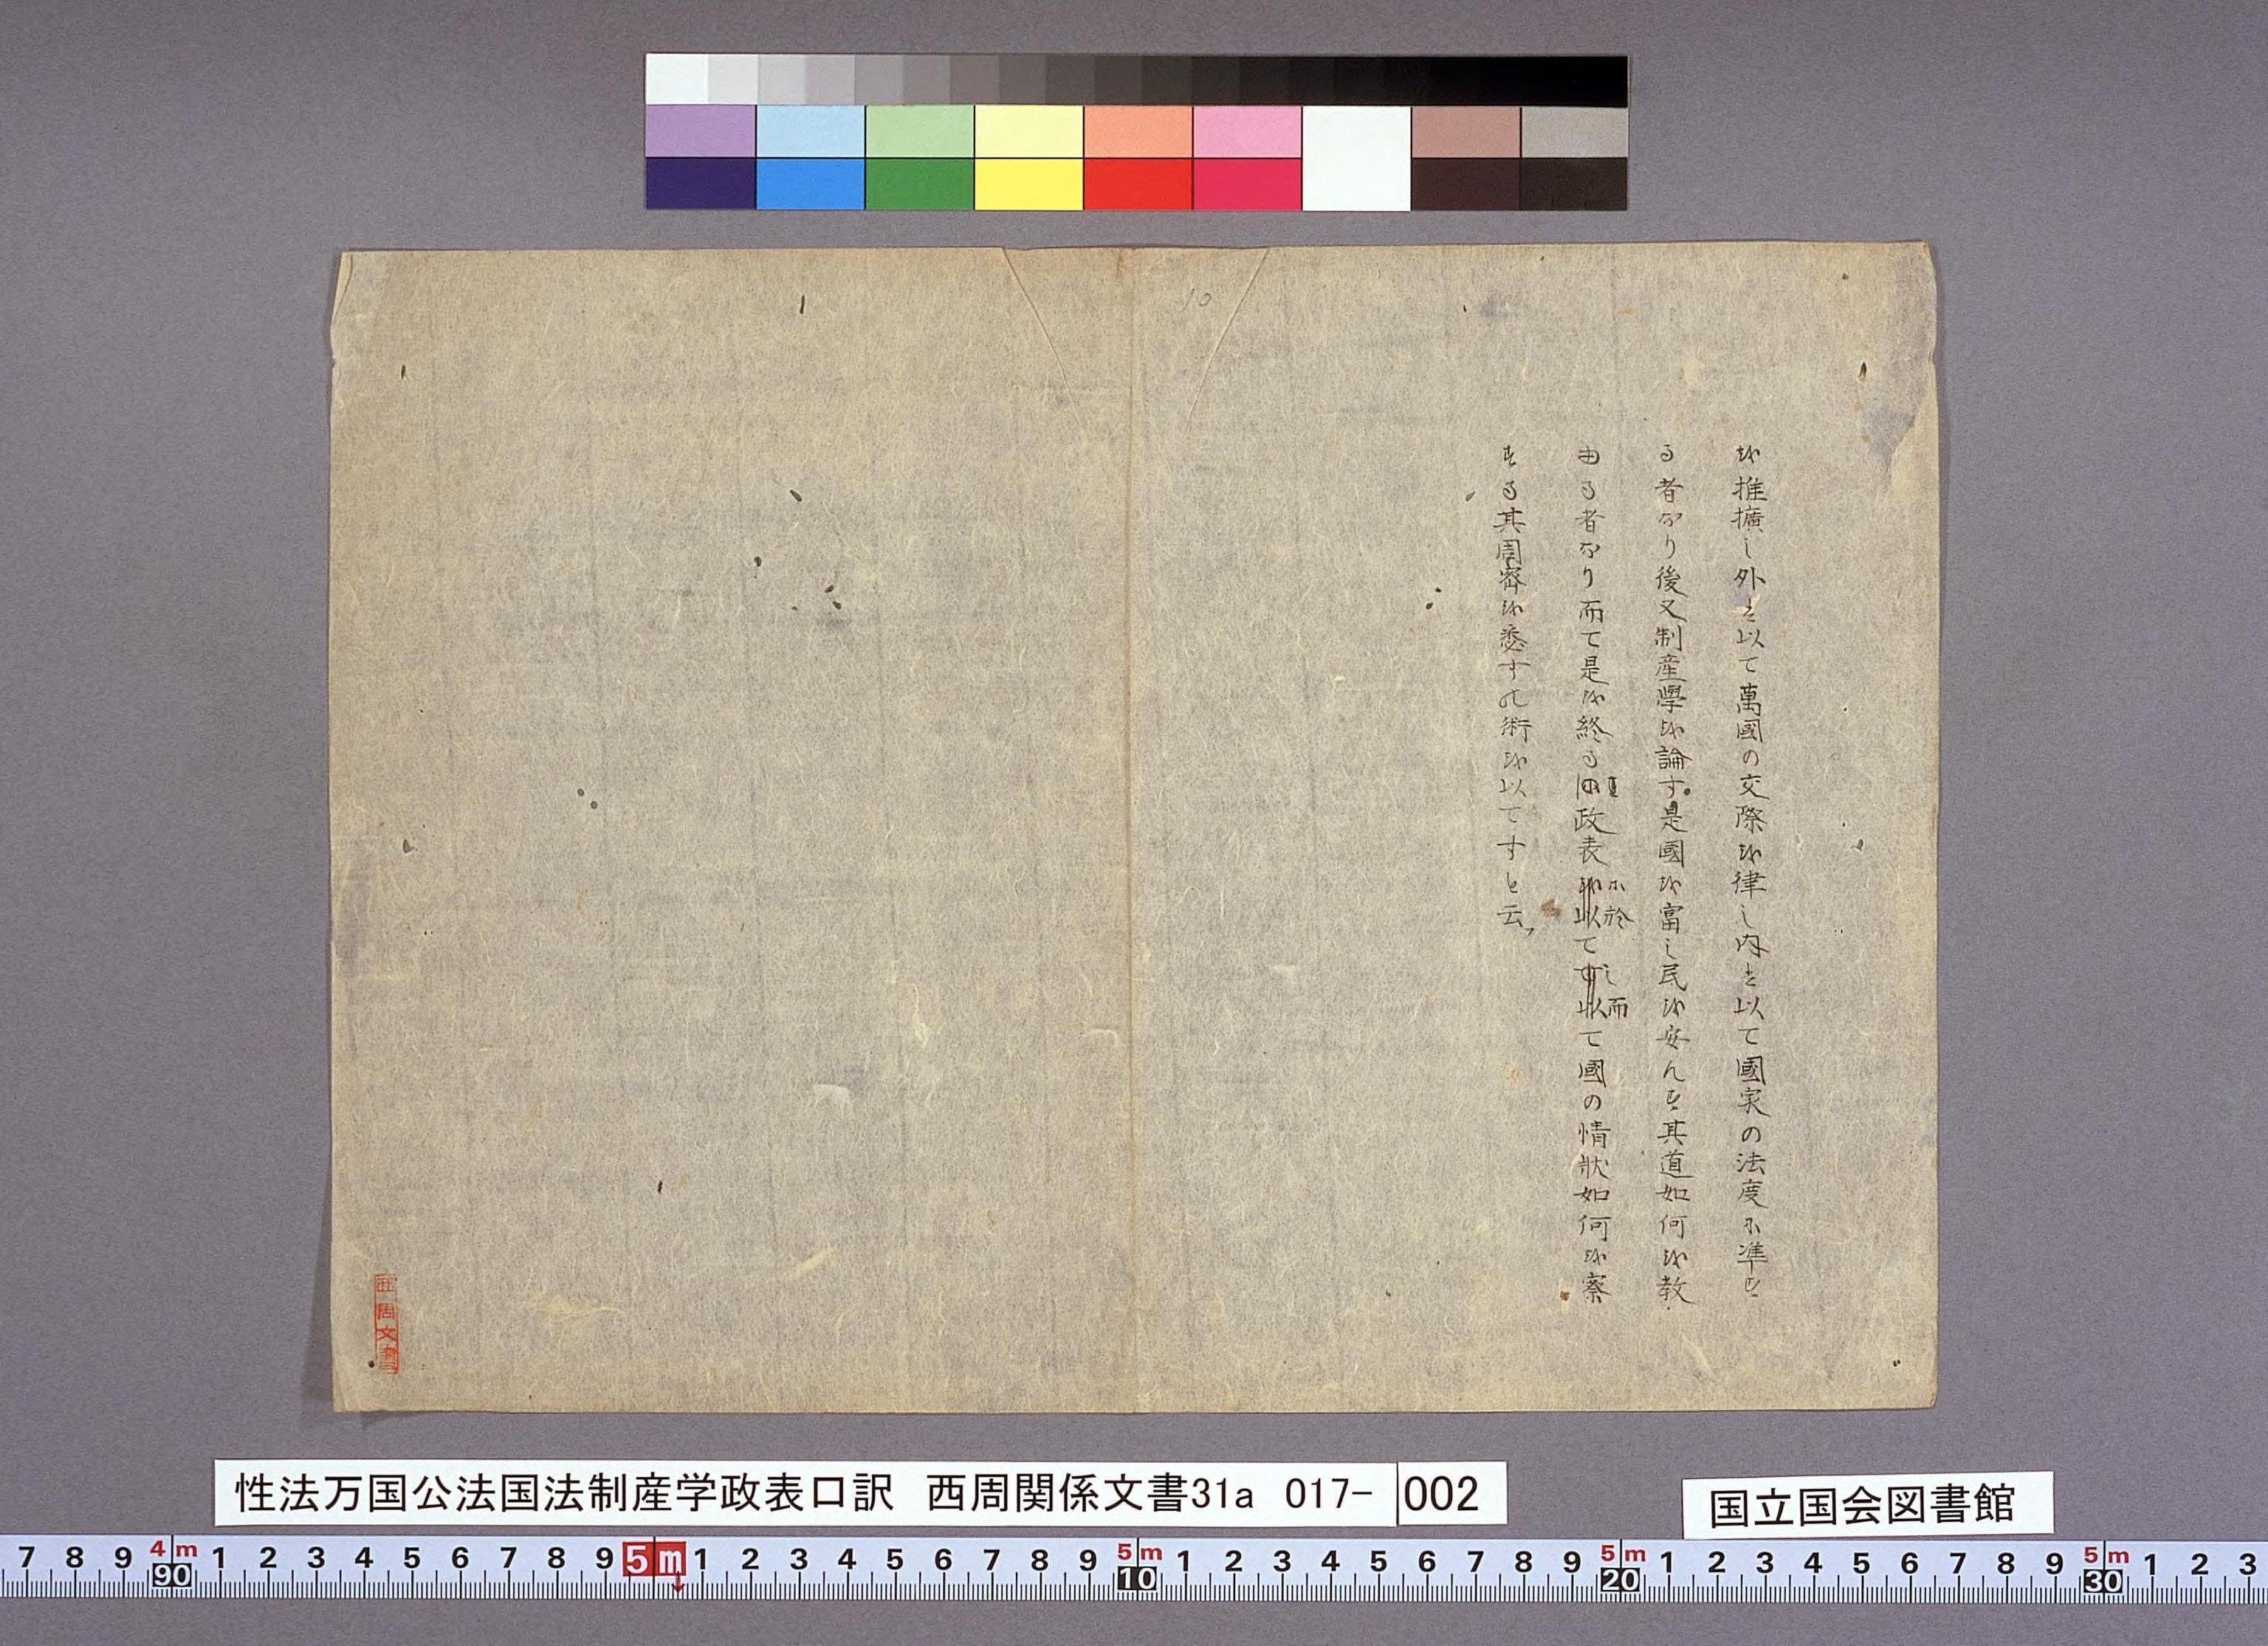 を推擴し外は以て萬國の交際を律し内は以て國家の法度に準す
る者なり後又制産學を論す是國を富し民を安んす其道如何を教
由る者なり而て是を終るに政表に於てし而て國の情狀如何を察
する其周密を悉すの術を以てすと云
10
西周文書
性法万国公法国法制産学政表口訳 西周関係文書31a 017-002
国立国会図書館
7 8 9 4m 90 1 2 3 4 5 6 7 8 9 5m 1 2 3 4 5 6 7 8 9 5m 10 1 2 3 4 5 6 7 8 9 5m 20 1 2 3 4 5 6 7 8 9 5m 30 1 2 3